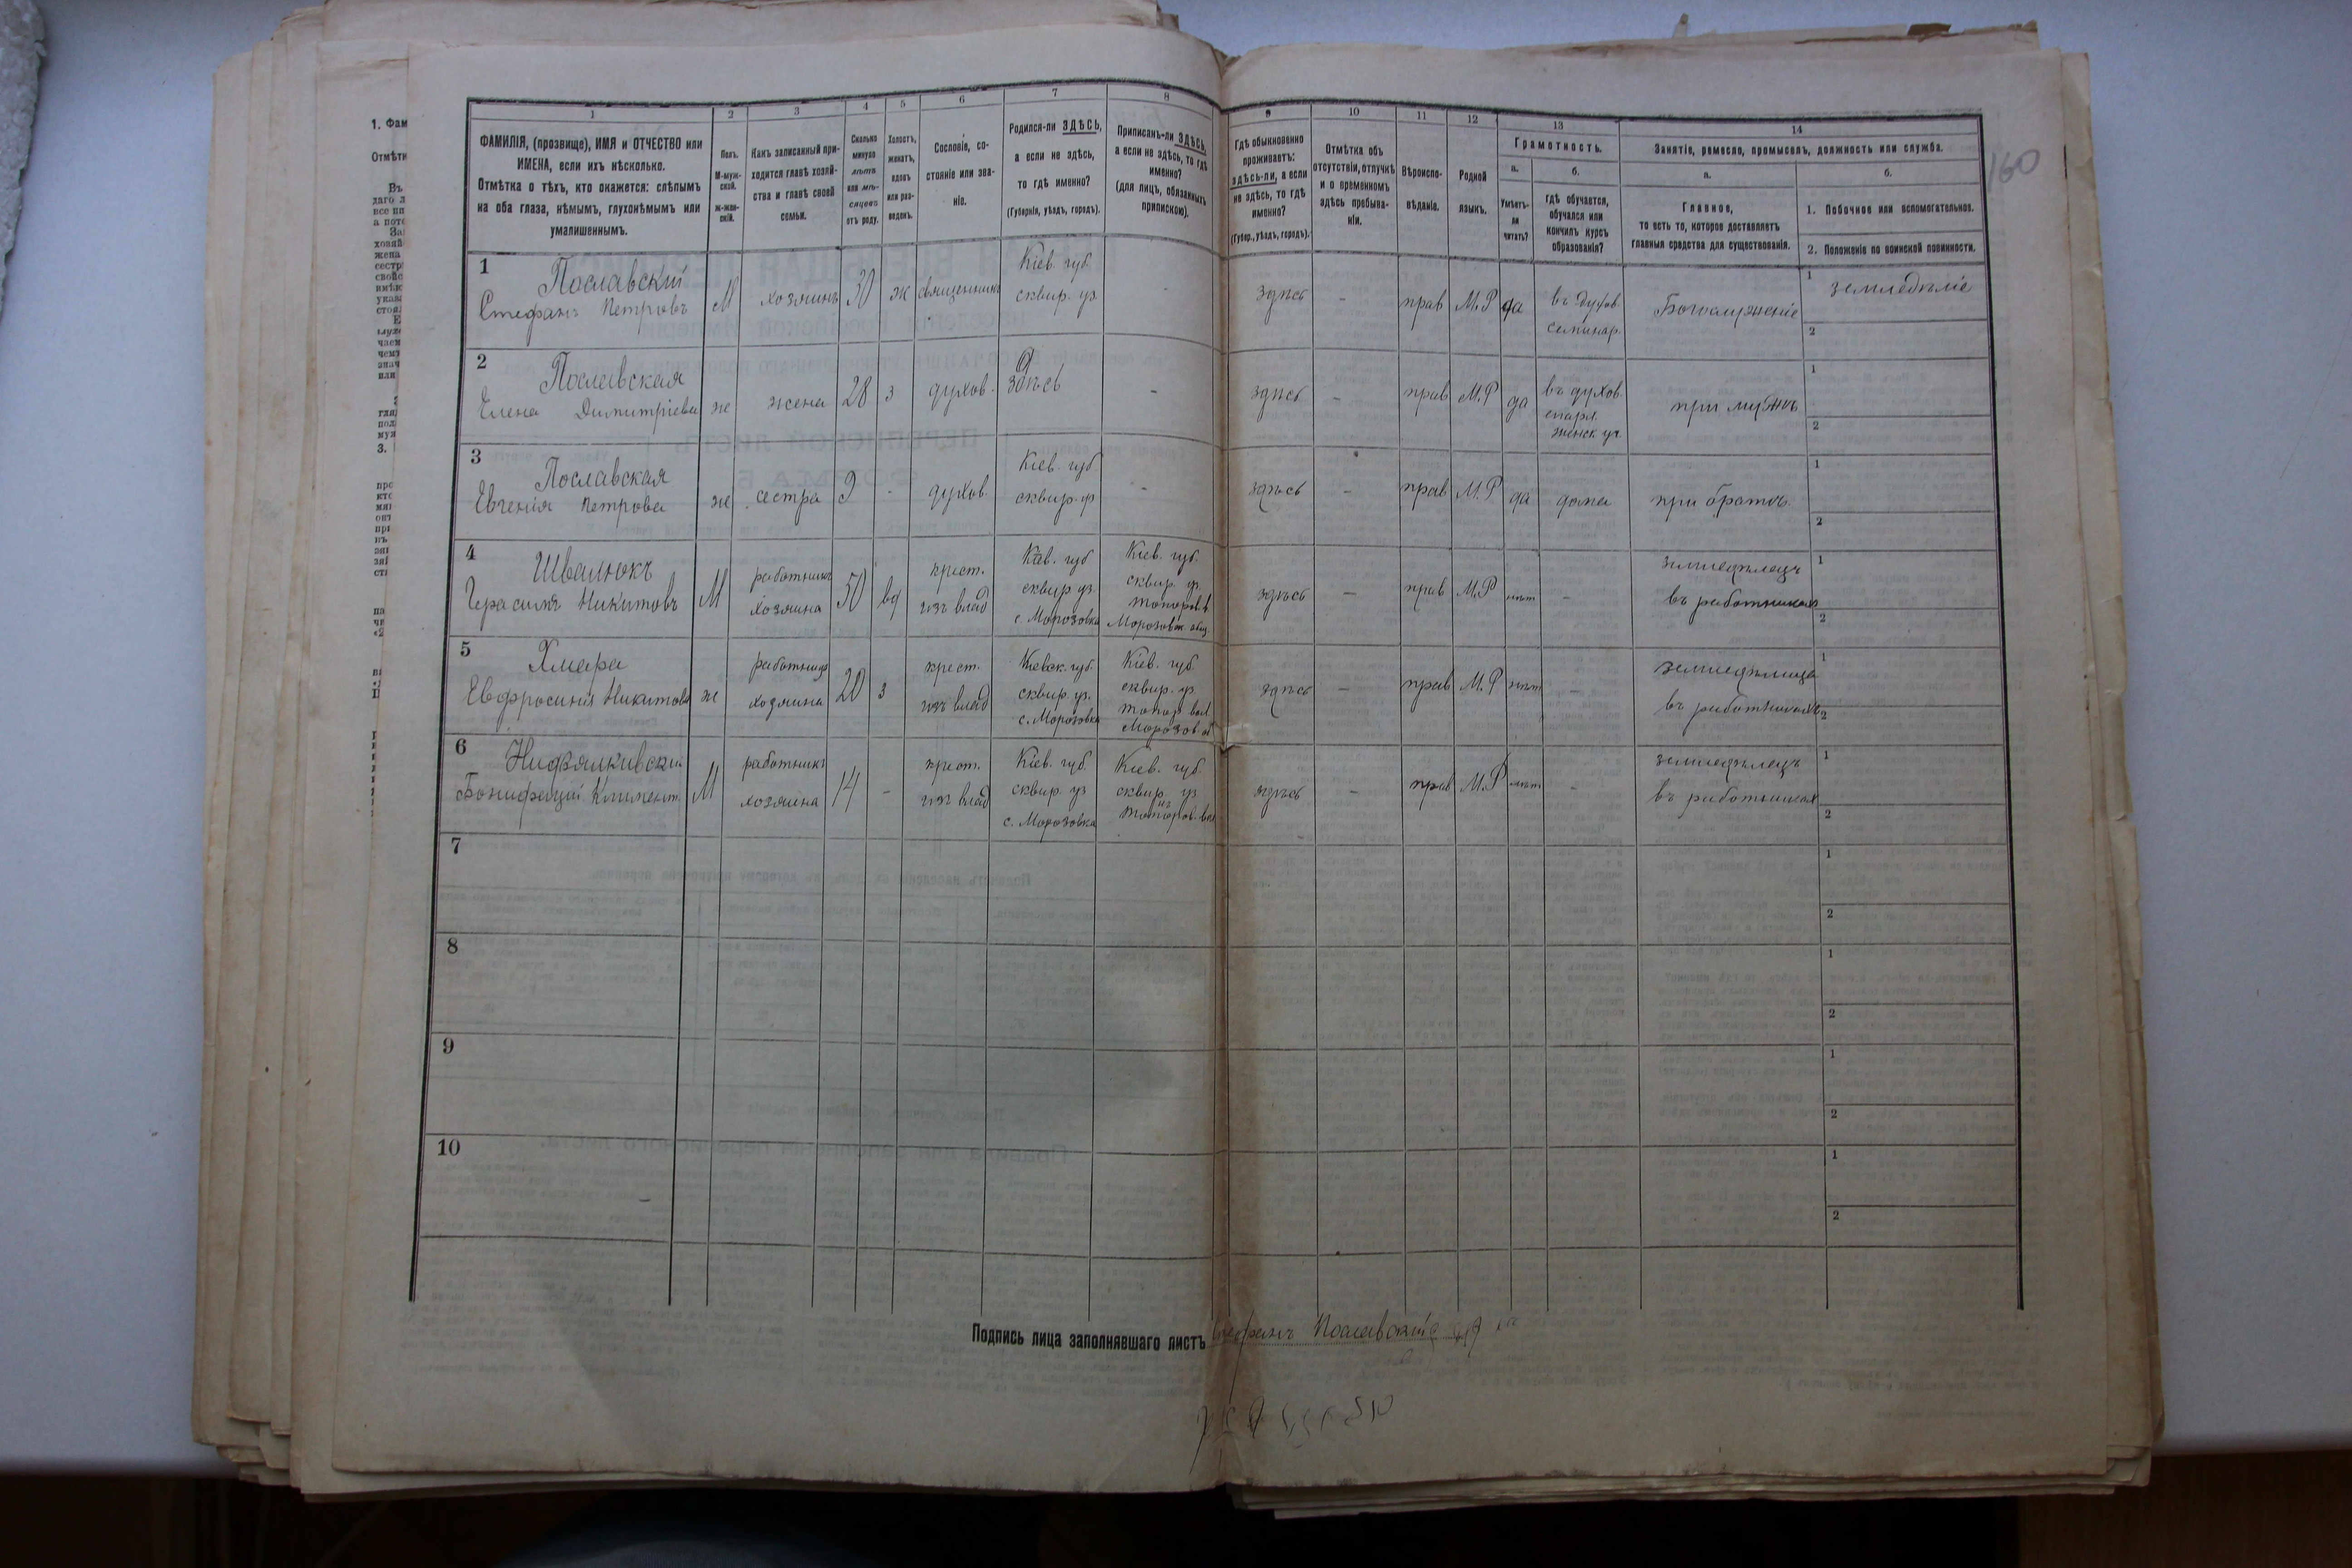 1
2
3
4
5
6
7
8
ФАМИЛІЯ, (прозвище), ИМЯ и ОТЧЕСТВО или
ИМЕНА, если ихъ нѣсколько.
Отмѣтка о тѣхъ, кто окажется: слѣпымъ
на оба глаза, нѣмымъ, глухонѣмымъ или
умалишеннымъ.
Полъ.
М-муж-
ской.
ж-жен-
скій.
Какъ записанный при-
ходится главѣ хозяй-
ства и главѣ своей
семьи.
Сколько
минуло
лѣтъ
или мѣ-
сяцевъ
отъ роду.
Холостъ,
женатъ,
вдовъ
или раз-
веденъ.
Сословіе, со-
стояніе или зва-
ніе.
Родился-ли ЗДѢСЬ,
а если не здѣсь,
то гдѣ именно?
(Губернія, уѣздъ, городъ).
Приписанъ-ли ЗДѢСЬ,
а если не здѣсь, то гдѣ
именно?
(для лицъ, обязанныхъ
припискою).
9
10
11
12
13
14
Гдѣ обыкновенно
проживаетъ:
здѣсь-ли, а если
не здѣсь, то гдѣ
именно?
(Губер., уѣздъ, городъ).
Отмѣтка объ
отсутствіи, отлучкѣ
и о временномъ
здѣсь пребыва-
ніи.
Вѣроиспо-
вѣданіе.
Родной
языкъ.
Грамотность.
а.
б.
Умѣетъ-
ли
читать?
гдѣ обучается,
обучался или
кончилъ курсъ
образованія?
Занятіе, ремесло, промыселъ, должность или служба.
а.
б.
Главное,
то есть то, которое доставляетъ
главныя средства для существованія.
1. Побочное или вспомогательное.
2. Положеніе по воинской повинности.
160
1 Пославский
Стефанъ Петровъ
М
хозяинъ
30
ж
священникъ
Кіев. губ.
сквир. уз.
-
здѣсь
-
прав
М.Р
да
въ духов.
семинар.
Богослуженіе
1 земледѣліе
2
2 Пославская
Елена Димитріева
ж
жена
28
з
духов.
здѣсь
-
здѣсь
-
прав
М.Р
да
въ духов.
епарх.
женск. уч.
при мужѣ
1
2
3 Пославская
Евгенія Петрова
ж
сестра
9
-
духов.
Кіев. губ.
сквир. уз
-
здѣсь
-
прав
М.Р
да
дома
при братѣ
1
2
4 Швалюкъ
Герасимъ Никитовъ
М
работникъ
хозяина
50
вд
крест.
изъ влад
Кіев. губ
сквир. уз.
с. Морозовка
Кіев. губ.
сквир. уз
топоров. в
Морозовск. общ.
здѣсь
-
прав
М.Р
нѣт
-
земледѣлецъ
въ работникахъ
1
2
5 Хмара
Евфросинія Никитова
ж
работница
хозяина
20
з
крест.
изъ влад
Кіевск. губ.
сквир. уз.
с. Морозовка
Кіев. губ.
сквир. уз
топор. вол
Морозов. об
здѣсь
-
прав
М.Р
нѣт
-
земледѣлица
въ работникахъ
1
2
6
Бонифацій Климент.
М
работникъ
хозяина
14
-
крест.
изъ влад
Кіев. губ.
сквир. уз
с. Морозовка
Кіев. губ.
сквир. уз
топоров. вол
здѣсь
-
прав
М.Р
нѣт
-
земледѣлецъ
въ работникахъ
1
2
7
1
2
8
1
2
9
1
2
10
1
2
Подпись лица заполнявшаго листъ Стефанъ Пославскій